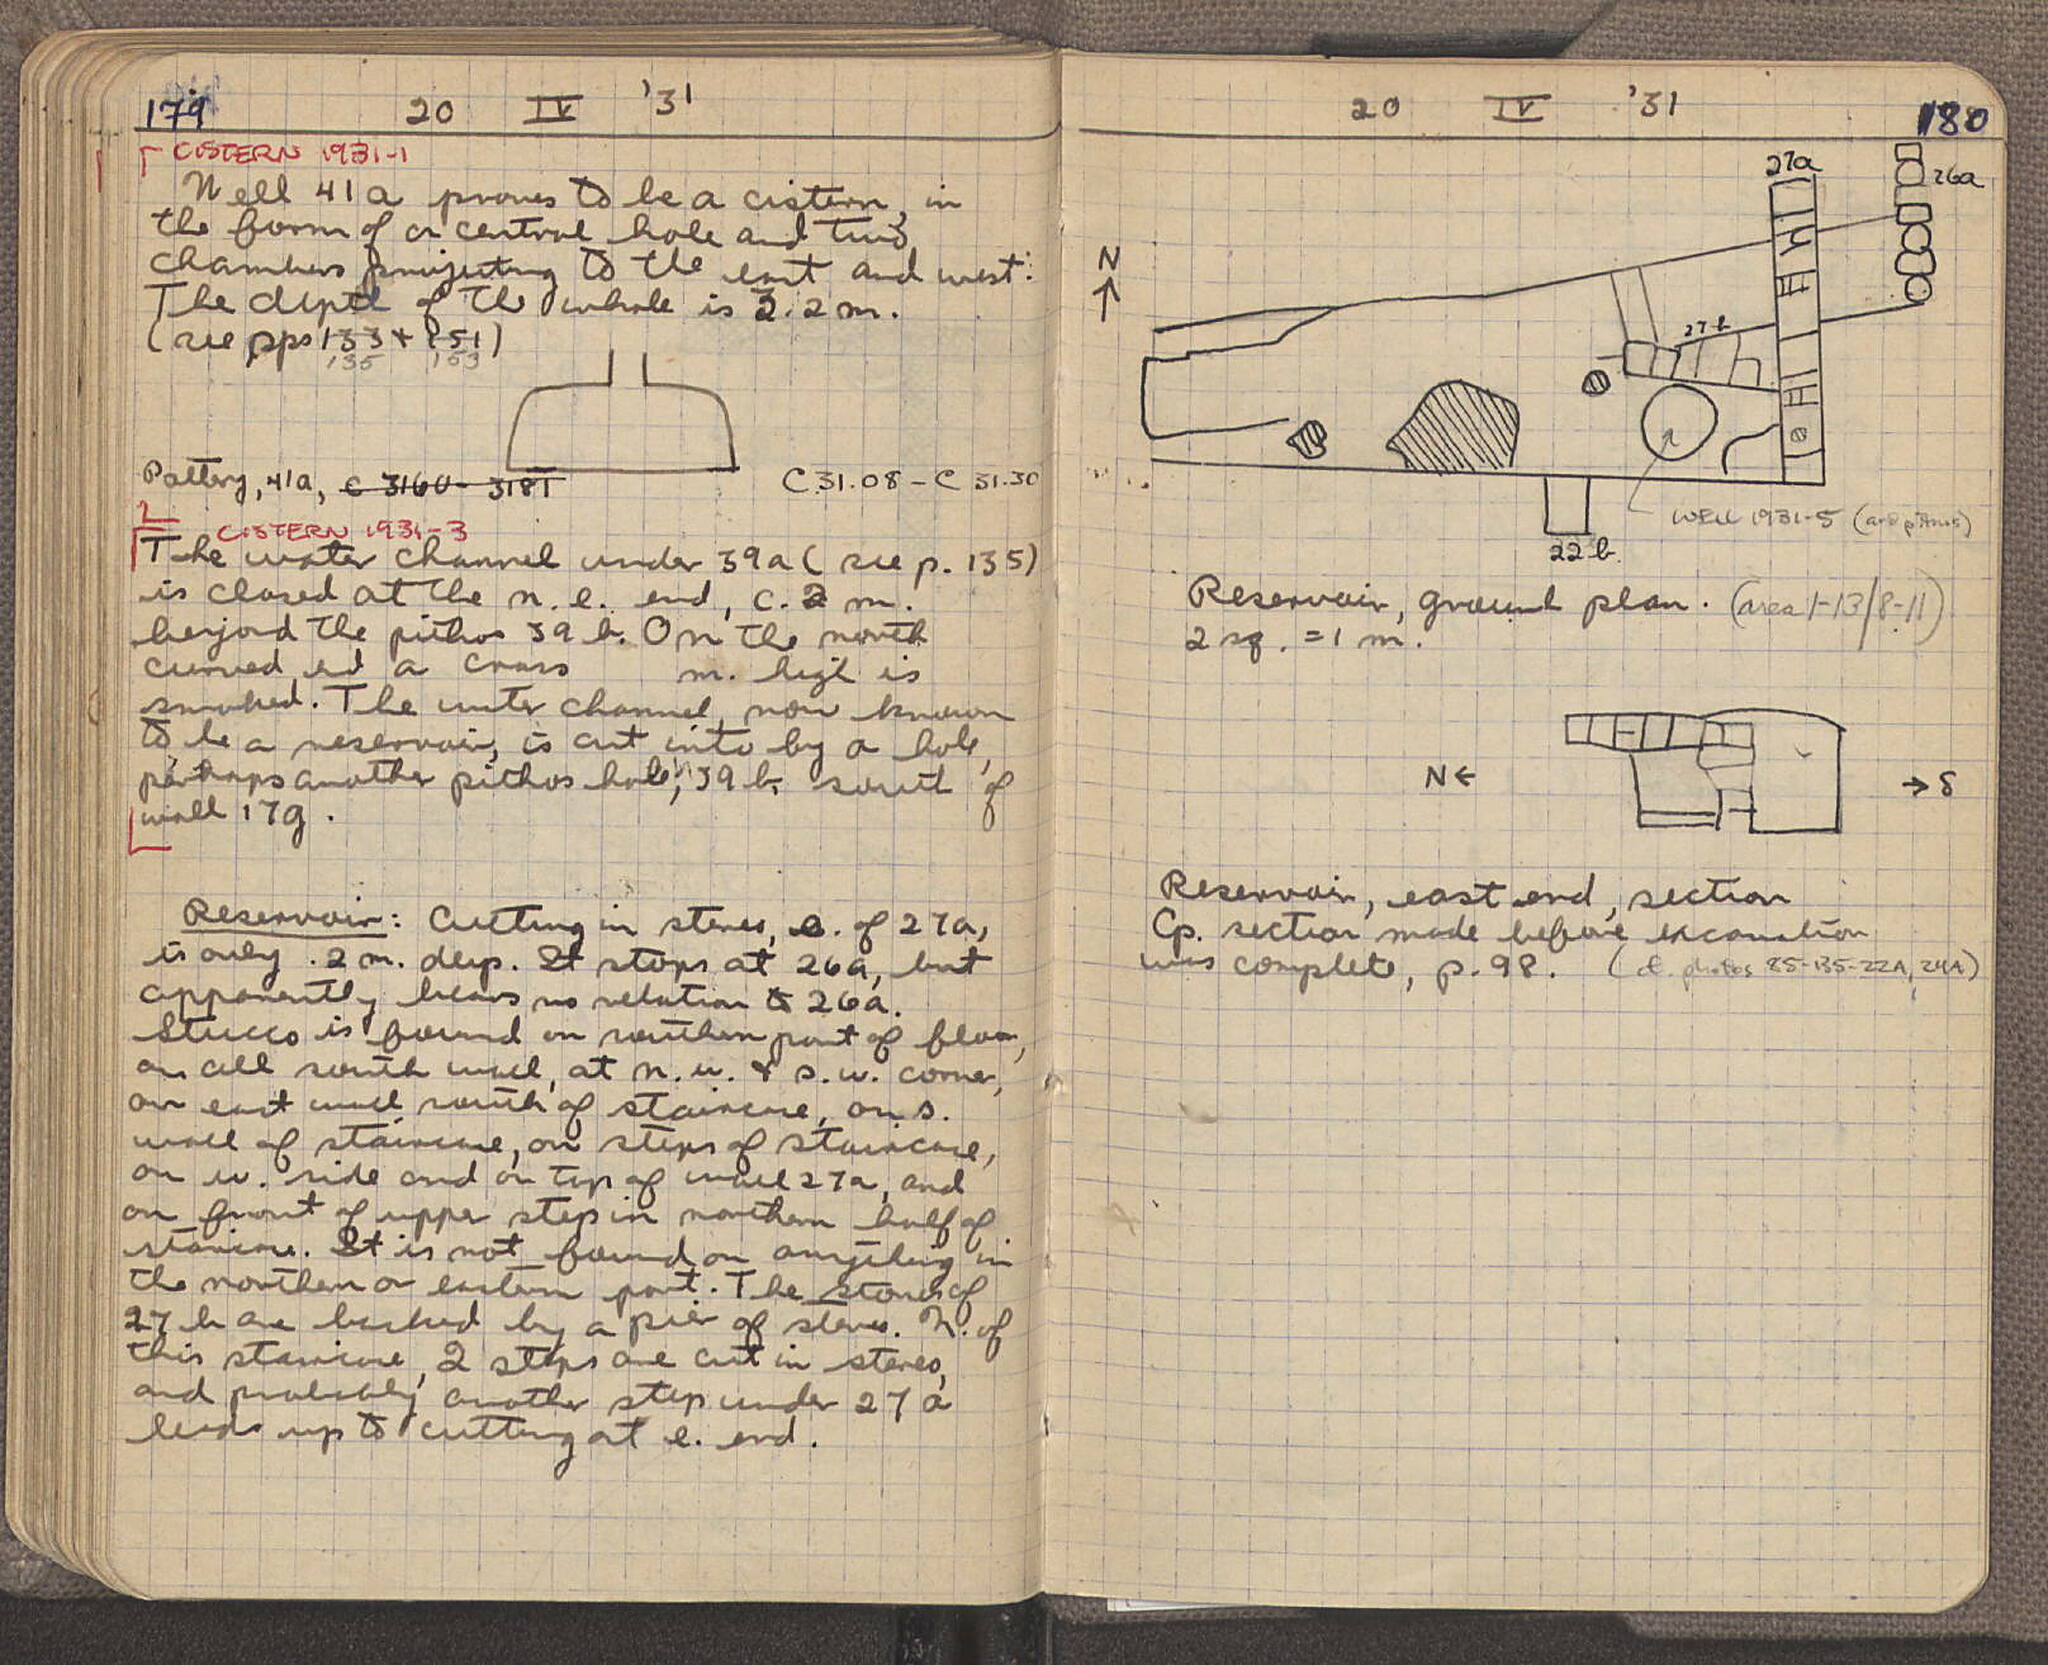 179 20 IV '31
CISTERN 1931-1
Well 41a proves to be a cistern, in
the form of a central hole and two
chambers projecting to the east and west.
The depth of the whole is 3.2 m.
(see pps 133 + 151)
135 153
Pottery, 41a, c 3160 - 3181 C 31.08 - C 31.30
CISTERN 1931-3
The water channel under 39a (see p. 135)
is closed at the n. e. end, c. 2 m.
beyond the pithos 39 b. On the north
curved end a cross m. high is
smoked. The water channel, now known
to be a reservoir, is cut into by a hole,
perhaps another pithos hole, 39 b, south of
wall 17g.
Reservoir: Cutting in stereo, e. of 27a,
is only .2 m. deep. It stops at 26a, but
apparently bears no relation to 26a.
Stucco is found on southern part of floor,
on all south wall, at n. w. & s. w. corner,
on east wall south of staircase, on s.
wall of staircase, on steps of staircase,
on w. side and on top of wall 27a, and
on front of upper step in northern half of
staircase. It is not found on anything in
the northern or eastern part. The stones of
27 b are backed by a pier of stereo. N. of
this staircase, 2 steps are cut in stereo,
and probably another step under 27a
leads up to cutting at e. end.
20 IV '31 180
27a
26a
N
27 b
WELL 1931-5 (and pithos)
22 b.
Reservoir, ground plan. (area 1-13/8-11)
2 sq. = 1 m.
N ← → S
Reservoir, east end, section
Cp. section made before excavation
was complete, p. 98. (cf. photos 85-135-22A, 24A)